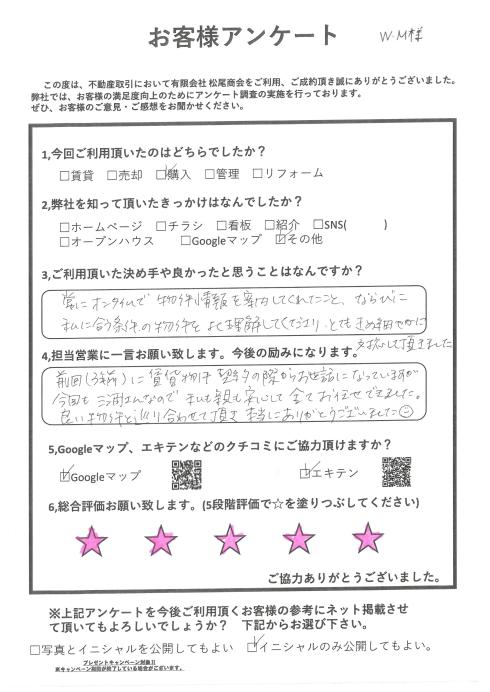 お客様アンケート
W.M様
この度は、不動産取引において有限会社 松尾商会をご利用、ご成約頂き誠にありがとうございました。
弊社では、お客様の満足度向上のためにアンケート調査の実施を行っております。
ぜひ、お客様のご意見・ご感想をお聞かせください。
1,今回ご利用頂いたのはどちらでしたか？
□賃貸 □売却 ☑購入 □管理 □リフォーム
2,弊社を知って頂いたきっかけはなんでしたか？
□ホームページ □チラシ □看板 □紹介 □SNS( )
□オープンハウス □Googleマップ ☑その他
3,ご利用頂いた決め手や良かったと思うことはなんですか？
常にオンタイムで物件情報を案内してくれたこと、ならびに
私に合う条件の物件をよく理解してくださり、とてもきめ細やかに
対応して頂きました
4,担当営業に一言お願い致します。今後の励みになります。
前回(3年前)に賃貸物件契約の際からお世話になっていますが
今回も三浦さんなので私も親も安心して全てお任せできました。
良い物件と巡り合わせて頂き本当にありがとうございました☺
5,Googleマップ、エキテンなどのクチコミにご協力頂けますか？
☑Googleマップ ☑エキテン
6,総合評価お願い致します。(5段階評価で☆を塗りつぶしてください)
ご協力ありがとうございました。
※上記アンケートを今後ご利用頂くお客様の参考にネット掲載させ
て頂いてもよろしいでしょうか？ 下記からお選び下さい。
□写真とイニシャルを公開してもよい ☑イニシャルのみ公開してもよい。
プレゼントキャンペーン対象!!
※キャンペーン期間が終了している場合がございます。